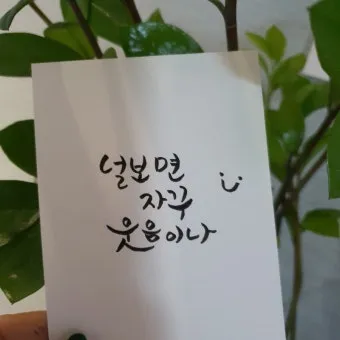 널보면
자꾸
웃음이나